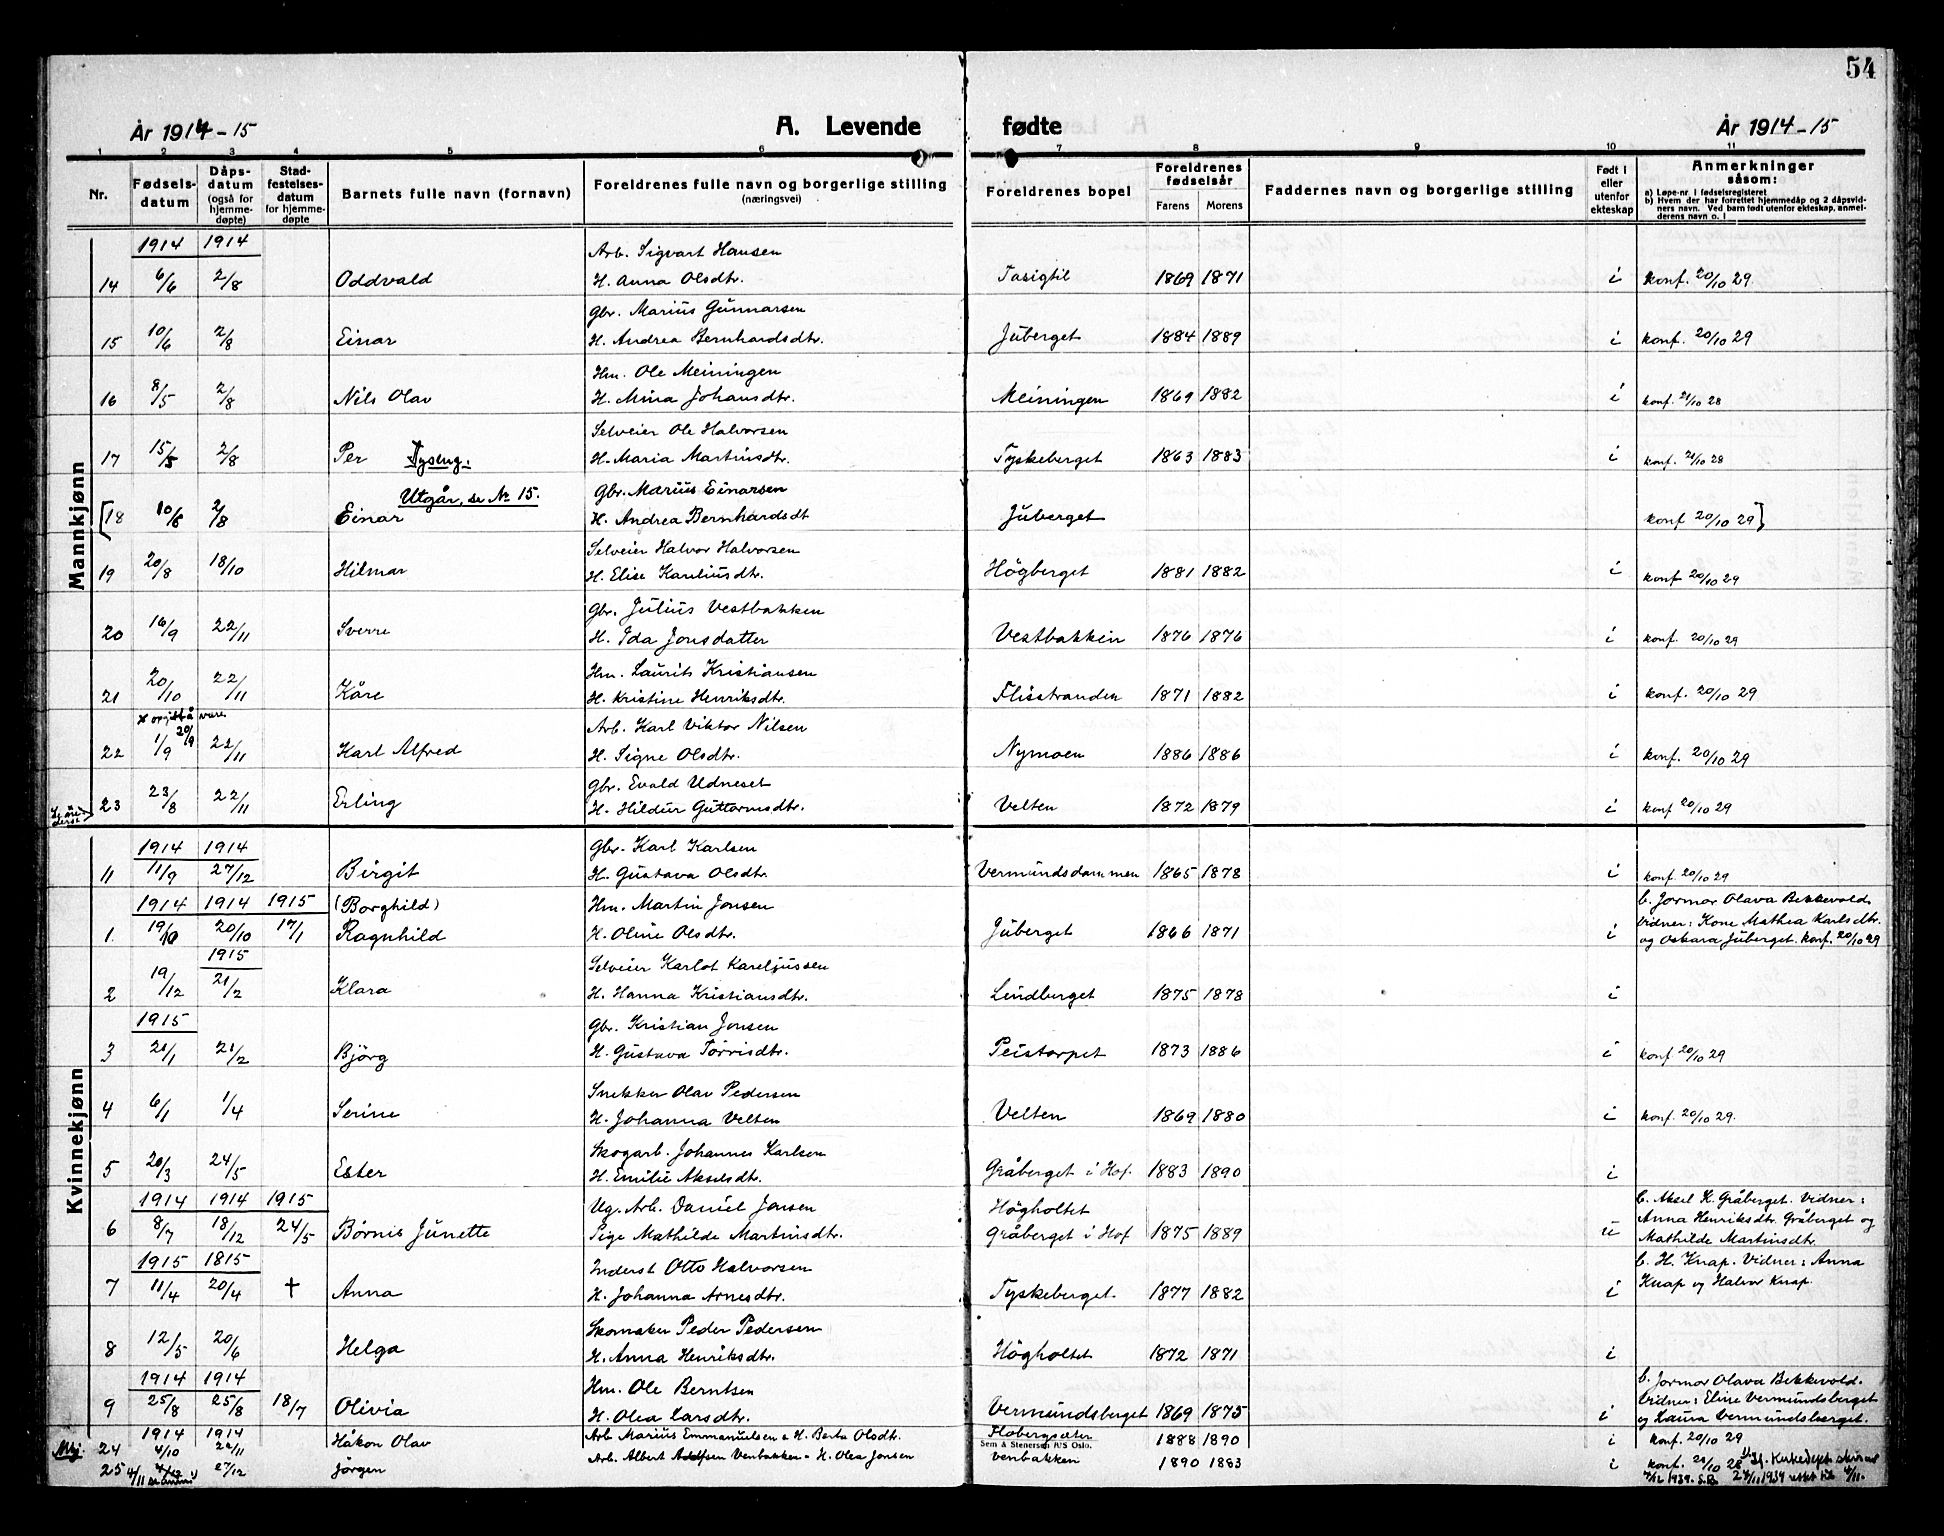 54
År 1914-15 A. Levende fødte År 1914-15
1 2 3 4 5 6 7 8 9 10 11
Nr. Fødsels-datum Dåps-datum (også for hjemme-døpte) Stad-festelses-datum for hjemme-døpte Barnets fulle navn (fornavn) Foreldrenes fulle navn og borgerlige stilling (næringsvei) Foreldrenes bopel Foreldrenes fødselsår Farens Morens Faddernes navn og borgerlige stilling Født i eller utenfor ekteskap Anmerkninger såsom:
a) Løpe-nr. i fødselsregisteret
b) Hvem der har forrettet hjemmedåp og 2 dåpsvid-
ners navn. Ved barn født utenfor ekteskap, anmel-
derens navn o. l
Mannkjønn
1914 1914 Arb. Sigvart Hansen
14 6/6 2/8 Oddvald H. Anna Olsdtr. Tasigtil 1869 1871 i konf. 20/10 29.
Gbr. Marius Gunnarsen
15 10/6 2/8 Einar H. Andrea Bernhardsdtr. Juberget 1884 1889 i konf. 20/10 29
Hm. Ole Meiningen
16 8/5 2/8 Nils Olav H. Mina Johansdtr. Meiningen 1869 1882 i konf. 21/10 28
Selveier Ole Halvorsen
17 15/5 2/8 Per Tyseng: H. Maria Martinsdtr. Tyskeberget 1863 1883 i konf. 21/10 28
Utgår, se No 15. Gbr. Marius Einarsen
[18 10/6 2/8 Einar H. Andrea Bernhardsdt Juberget konf 20/10 29]
Selveier Halvor Halvorsen
19 20/8 18/10 Hilmar H. Elise Kareliusdtr. Högberget 1881 1882 i konf 20/10 29
Gbr. Julius Vestbakken
20 16/9 22/11 Sverre H. Ida Jonsdatter Vestbakken 1876 1876 i konf. 20/10 29
Hm. Laurits Kristiansen
21 20/10 22/11 Kåre H. Kristine Henriksdtr. Flisstranden 1871 1882 i konf. 20/10 29
x opgitt å være 20/9 Arb. Karl Viktor Nilsen
22 1/9 22/11 Karl Alfred H. Signe Olsdtr. Nymoen 1886 1886 i konf. 20/10 29
Gbr. Evald Udneset
23 23/8 22/11 Erling H. Hildur Guttormsdtr. Velten 1872 1879 i konf 20/10 29
Kvinnekjønn
1914 1914 Gbr. Karl Karlsen
11 11/9 27/12 Birgit H. Gustava Olsdtr. Vermundsdammen 1865 1878 i konf. 20/10 29
1914 1914 1915 (Borghild) Hm. Martin Jonsen C. Jormor Olava Bekkevold.
1. 19/10 20/10 17/1 Ragnhild H. Oline Olsdtr. Juberget 1866 1871 i Vidner: Kone Mathea Karlsdtr. og Oskara Juberget. konf. 20/10 29
1915 Selveier Karlot Kareljussen
2 19/12 21/2 Klara H. Hanna Kristiansdtr. Lindberget 1875 1878 i
1915 Gbr. Kristian Jonsen
3 21/1 21/2 Björg H. Gustava Torrisdtr. Peistorpet 1873 1886 i konf 20/10 29
Snekker Olav Pedersen
4 6/1 1/4 Serine H. Johanna Velten Velten 1869 1880 i konf. 20/10 29.
Skogarb. Johannes Karlsen
5 20/3 24/5 Ester H. Emilie Akselsdt. Gråberget i Hof. 1883 1890 i
1914 1914 1915 Ug. Arb. Daniel Jonsen Högholtet C. Aksel K. Gråberget. Vidner:
6 8/7 18/12 24/5 Børnis Junette Pige Mathilde Martinsdtr. Gråberget i Hof 1875 1889 u Anna Henriksdtr. Gråberget og Mathilde Martinsdtr.
1915 1815 Inderst Otto Halvorsen C. H. Knap. Vidner: Anna
7 11/4 20/4 † Anna H. Johanna Arnesdtr. Tyskeberget. 1877 1882 i Knap og Halvor Knap.
Skomaker Peder Pedersen
8 12/5 20/6 Helga H. Anna Henriksdtr. Högholtet 1872 1871 i
1914 1914 Hm. Ole Berntsen C. Jormor Olava Bekkevold.
9 25/8 25/8 18/7 Olivia H. Olea Larsdtr. Vermundsberget 1869 1875 i Vidner: Eline Vermundsberget og Laura Vermundsberget.
1914 1914
Mkj. 24 4/10 24/11 Håkon Olav Arb Marius Emmanuelsen & H. Berta Olsdtr. Flobergseter 1888 1890 i konf. 20/10 29
Sem & Stenersen A/S Oslo.
25 4/12 27/12 Jörgen Arb. Albert Adolfsen Venbakken - H. Olea Jonsen Venbakken 1890 1883 i konf. 21/10 28
4/11
4/12 1939. S.B. 24/11 1939 rettet til 4/11.